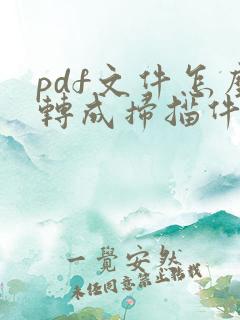 pdf文件怎麼
轉成掃描件
一覺安然
未经同意禁止转载